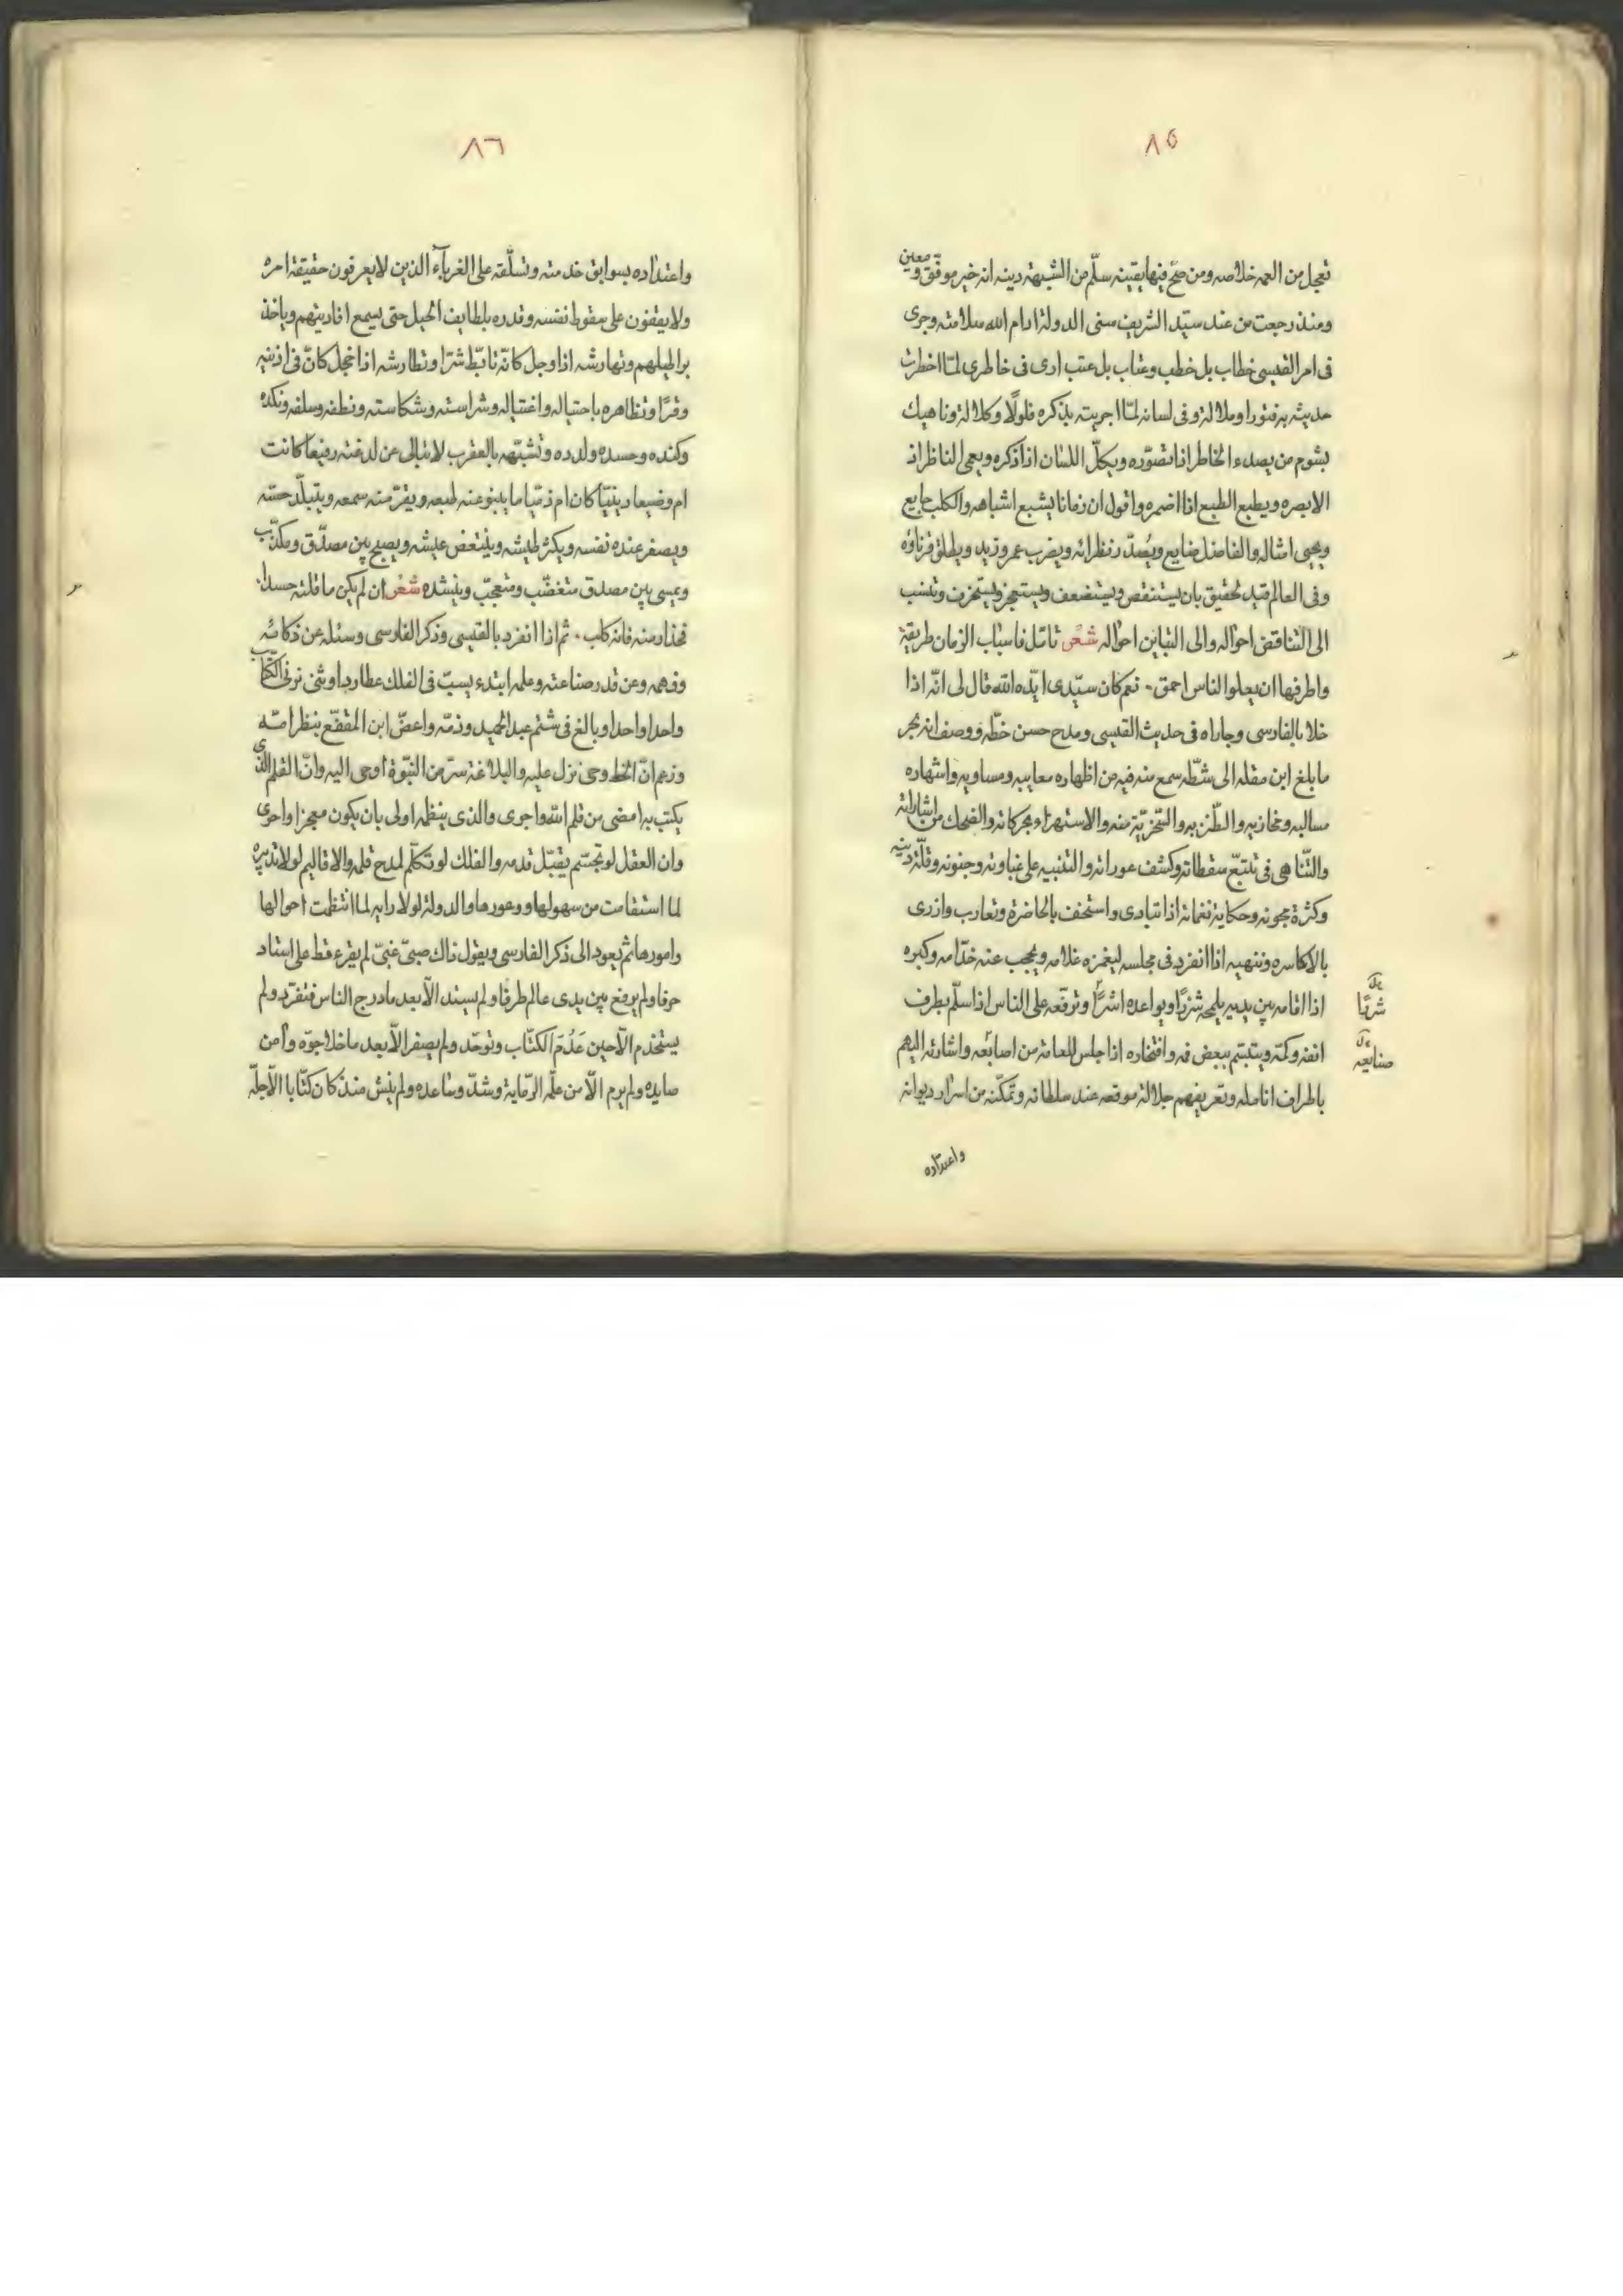 ٨٥
تعجل من العمه خلاصه ومن صحّ فيها يقينه سلّم من الشبهة دينه انه خير موفق ومعين
ومنذ رجعت من عند سيّد الشريف سنى الدولة ادام الله سلامته وجرى
فى امر القيسى خطاب بل خطب وعتاب بل عتب ارى فى خاطرى لمّا اخطرت
حديثه به فتورا وملالة وفى لسانه لمّا اجريته بذكره فلولًا وكلالة وناهيك
بشوم من يصدء الخاطر اذا تصوّره ويكلّ اللسان اذا ذكره ويعمى الناظر اذ
الابصره ويطبع الطبع اذا اضمره واقول ان زمانا يشبع اشباهه والكلب جايع
ويحيى امثاله والفاضل ضايع ويُصدّ رنظراته ويضرب عمرو زيد ويطلق قرناؤه
وفى العالم قيد تحقيق بان يستنقص ويستضعف ويستعجز ويستخرف وتنسب
الى التناقض احواله والى التباين احواله شعر تامّل فاسباب الزمان طريقة
واطرفها ان يعلوا الناس احمق . نعم كان سيّدى ايّده الله قال لى انّه اذا
خلا بالفارسى وجاراه فى حديث القيسى ومدح حسن خطّه ووصف انه بحر
ما بلغ ابن مقله الى شطّه سمع منه فيه من اظهاره معايبه ومساويه واشهاره
مسالبه ومخازيه والطّنز به والسّخريّة منه والاستهزاء بحركاته والضحك من اشاراته
والتّناهى فى تتبّع سقطاته وكشف عوراته والتنبيه على غباوته وجنونه وقلّة دينه
وكثرة مجونه وحكاية نغماته اذا تبادى واستخف بالحاضرة وتعارب وازرى
بالاكاسره وننهيه اذا انفرد فى مجلسه ليغمزه غلامه ويحجب عنه خدّامه وكبره
اذا اقامه بين يديه يلمحه شزرًا ويواعده اشرًّا وترفّعه على الناس اذا سلّم بطرف
شرقًا
انفه وكمّه ويتبسّم ببعض فه وافتخاره اذا جلس للعامة من اصابعه واشارته اليهم
صنايعه
باطراف انامله وتعريفهم جلالة موقعه عند سلطانه وتمكّنه من اسرار ديوانه
واعتداده
٨٦
واعتداده بسوابق خدمته وتسلّقه على الغرباء الذين لا يعرفون حقيقة امره
ولا يقفون على سقوط نفسه وقدره بلطايف الحيل حتى يسمع اقاريثهم وياخذ
براطيلهم وتهارشه اذا وجل كانّه تابّط شرّا وتطارشه اذا خجل كانّ فى اذنيه
وقرًا وتظاهره باحتياله واغتياله وشراسته وشكاسته ونطفه وسلفه ونكده
وكنده وحسده ولدده وتشبّهه بالعقرب لا تبالى عن لدغته رفيعا كانت
ام وضيعا دينيّا كان ام ذمّيا ما ينبو عنه طبعه ويقرّ منه سمعه ويتبلّد حسّه
ويصغر عنده نفسه ويكثر طيشه ويتنغّص عيشه ويصبح بين مصدّق ومكذّب
ويمسى بين مصدق متغضّب ومتعجّب وينشده شعر ان لم يكن ما قلته حسدا
فحذار منه فانه كلب . ثم اذا انفرد بالقيسى وذكر الفارسى وسئله عن ذكائه
وفهمه وعن قدر صناعته وعلمه ابتدء يسبّ فى الفلك عطاردا وثنى نزنى الكتّاب
واحدا واحدا وبالغ فى شتم عبد الحميد وذمّه واعضّ ابن المقفّع ببظر امّه
وزعم انّ الخط وحى نزل عليه والبلاغة سرّ من النبوّة اوحى اليه وانّ القلم الذى
يكتب به امضى من قلم الله واجرى والذى ينظمه اولى بان يكون معجزا واحرى
وان العقل لو تجسّم يقبّل قدمه والفلك لو تكلّم لمدح قلمه والاقاليم لولا تدبيره
لما استقامت من سهولها ووعورها والدولة لولا رايه لما انتظمت احوالها
وامورها ثم يعود الى ذكر الفارسى ويقول ذاك صبىّ غبىّ لم يقرء قط على استاد
حرفا ولم يرفع بين يدى عالم طرفا ولم يسند الّا بعد ما درج الناس فتفرّد ولم
يستخدم الّا حين عَدُمَ الكتّاب وتوحّد ولم يصفر الّا بعد ما خلا جوّه وامن
صايده ولم يرم الّا من علّمه الرّماية وشدّ وساعده ولم ينش منذ كان كتابا الّا جلّه